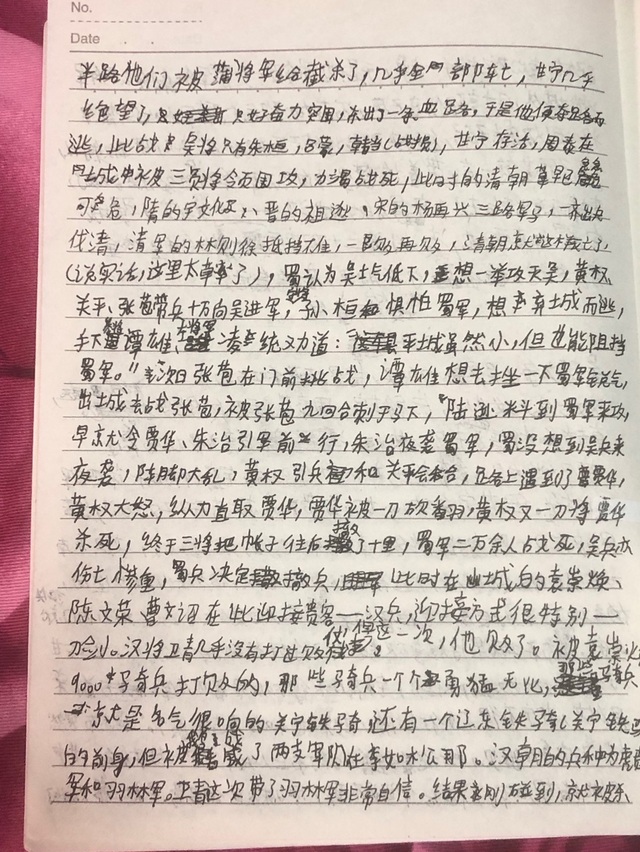 No.
Date
半路他们被蒲将军给截杀了,几乎全部阵亡,甘宁几乎
绝望了,只好奋力突围,杀出了一条血路,于是他便夺路而
逃,此战吴将只有朱桓,吕蒙,韩当(战损),甘宁存活,周泰在
土城中被三员将领围攻,力竭战死,此时的清朝草
可危,隋的宇文化及、晋的祖逖、宋的杨再兴三路军马,一齐出
伐清,清军的林则徐抵挡不住,一败再败,清朝就
(说实话,这里太草率了),蜀认为吴士气低下,想一举攻灭吴,黄权
关平、张苞带兵十万向吴进军,孙桓惧怕蜀军,想弃土城而逃,
手下谭雄、凌统又劝道:平城虽然小,但也能阻挡
蜀军。"次日张苞在门前挑战,谭雄想去挫一下蜀军锐气,
出土城去战张苞,被张苞九回合刺于马下,陆逊料到蜀军来攻,
早就令贾华、朱治引军前行,朱治夜袭蜀军,蜀没想到吴兵来
夜袭,阵脚大乱,黄权引兵和关平会合,路上遇到了贾华,
黄权大怒,纵力直取贾华,贾华被一刀砍翻,黄权又一刀将贾华
杀死,终于三将把帐子往后撤了十里,蜀军二万余人战死,吴兵亦
伤亡惨重,蜀兵决定撤兵,此时在山城的袁崇焕、
陈文荣、曹文诏在此迎接贵客——汉兵,迎接方式很特别——
刀剑。汉将卫青几乎没有打过败仗,但这一次,他败了。被袁崇焕
9000骑兵打败的,那些骑兵一个个勇猛无比,
就是名气很响的关宁铁骑,还有一个辽东铁骑(关宁铁骑
的前身,但被 了两支军队在李如松那。汉朝的兵种为虎贲
军和羽林军。卫青这次带了羽林军非常自信。结果刚碰到,就被杀